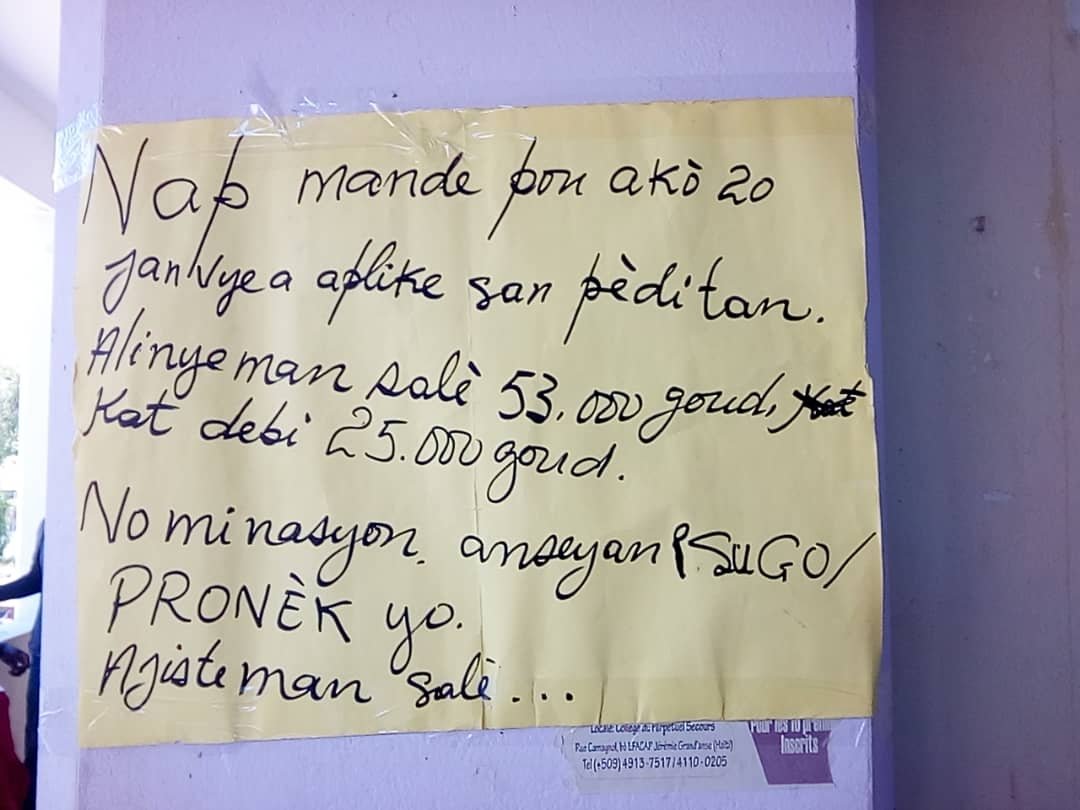 Nap mande pou akò 20
janvye a aplike san pèdi tan.
Alinyeman salè 53.000 goud,
Kat debi 25.000 goud.
Nominasyon anseyan PSUGO/
PRONÈK yo.
Ajisteman salè...
Locale: Collège du Perpétuel Secours
Pour les 10 prem
Inscrits
Rue Camagnol, bò LFACAP Jérémie Grand'anse (Haïti)
Tel (+509) 4913-7517 / 4110-0205